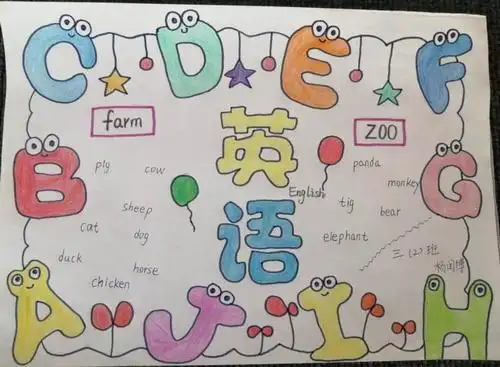 C D E F
farm
ZOO
英
语
English
B
G
pig cow
sheep
cat dog
duck horse
chicken
panda
monkey
tig bear
elephant
三(2)班
A J I H